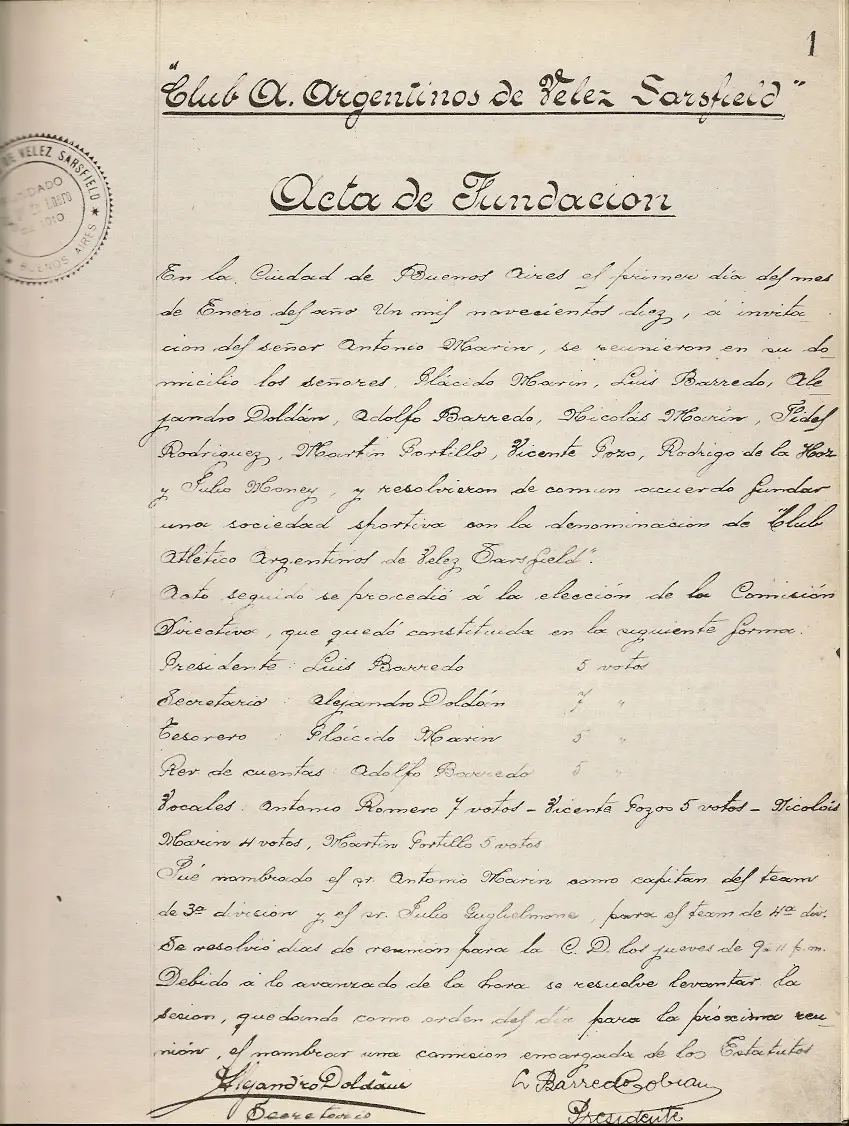 1
"Club A. Argentinos de Velez Sarsfield"
DE VELEZ SARSFIELD
FUNDADO
Enero
DE 1910
BUENOS AIRES
Acta de Fundacion
En la Ciudad de Buenos Aires el primer día del mes
de Enero del año Un mil novecientos diez, á invita
cion del señor Antonio Marin, se reunieron en su do
micilio los señores, Plácido Marin, Luis Barredo, Ale
jandro Doldán, Adolfo Barredo, Nicolás Marín, Fidel
Rodriguez, Martin Portillo, Vicente Pozo, Rodrigo de la Hoz
y Julio Money, y resolvieron de comun acuerdo fundar
una sociedad sportiva con la denominacion de "Club
Atlético Argentinos de Velez Sarsfield".
Acto seguido se procedió á la elección de la Comisión
Directiva, que quedó constituida en la siguiente forma:
Presidente: Luis Barredo 5 votos
Secretario: Alejandro Doldán 7 "
Tesorero: Plácido Marin 5 "
Rev. de cuentas: Adolfo Barredo 5 "
Vocales: Antonio Romero 7 votos - Vicente Pozo 5 votos - Nicolás
Marin 4 votos, Martin Portillo 5 votos
Fué nombrado el sr. Antonio Marin como capitan del team
de 3ª division y el sr. Julio Guglielmone, para el team de 4ª div.
Se resolvió dias de reunión para la C. D. los jueves de 9 á 11 p.m.
Debido á lo avanzado de la hora se resuelve levantar la
sesion, quedando como orden del día para la próxima reu-
nión, el nombrar una comision encargada de los Estatutos
Alejandro Doldán L Barredo Cobian
Secretario Presidente